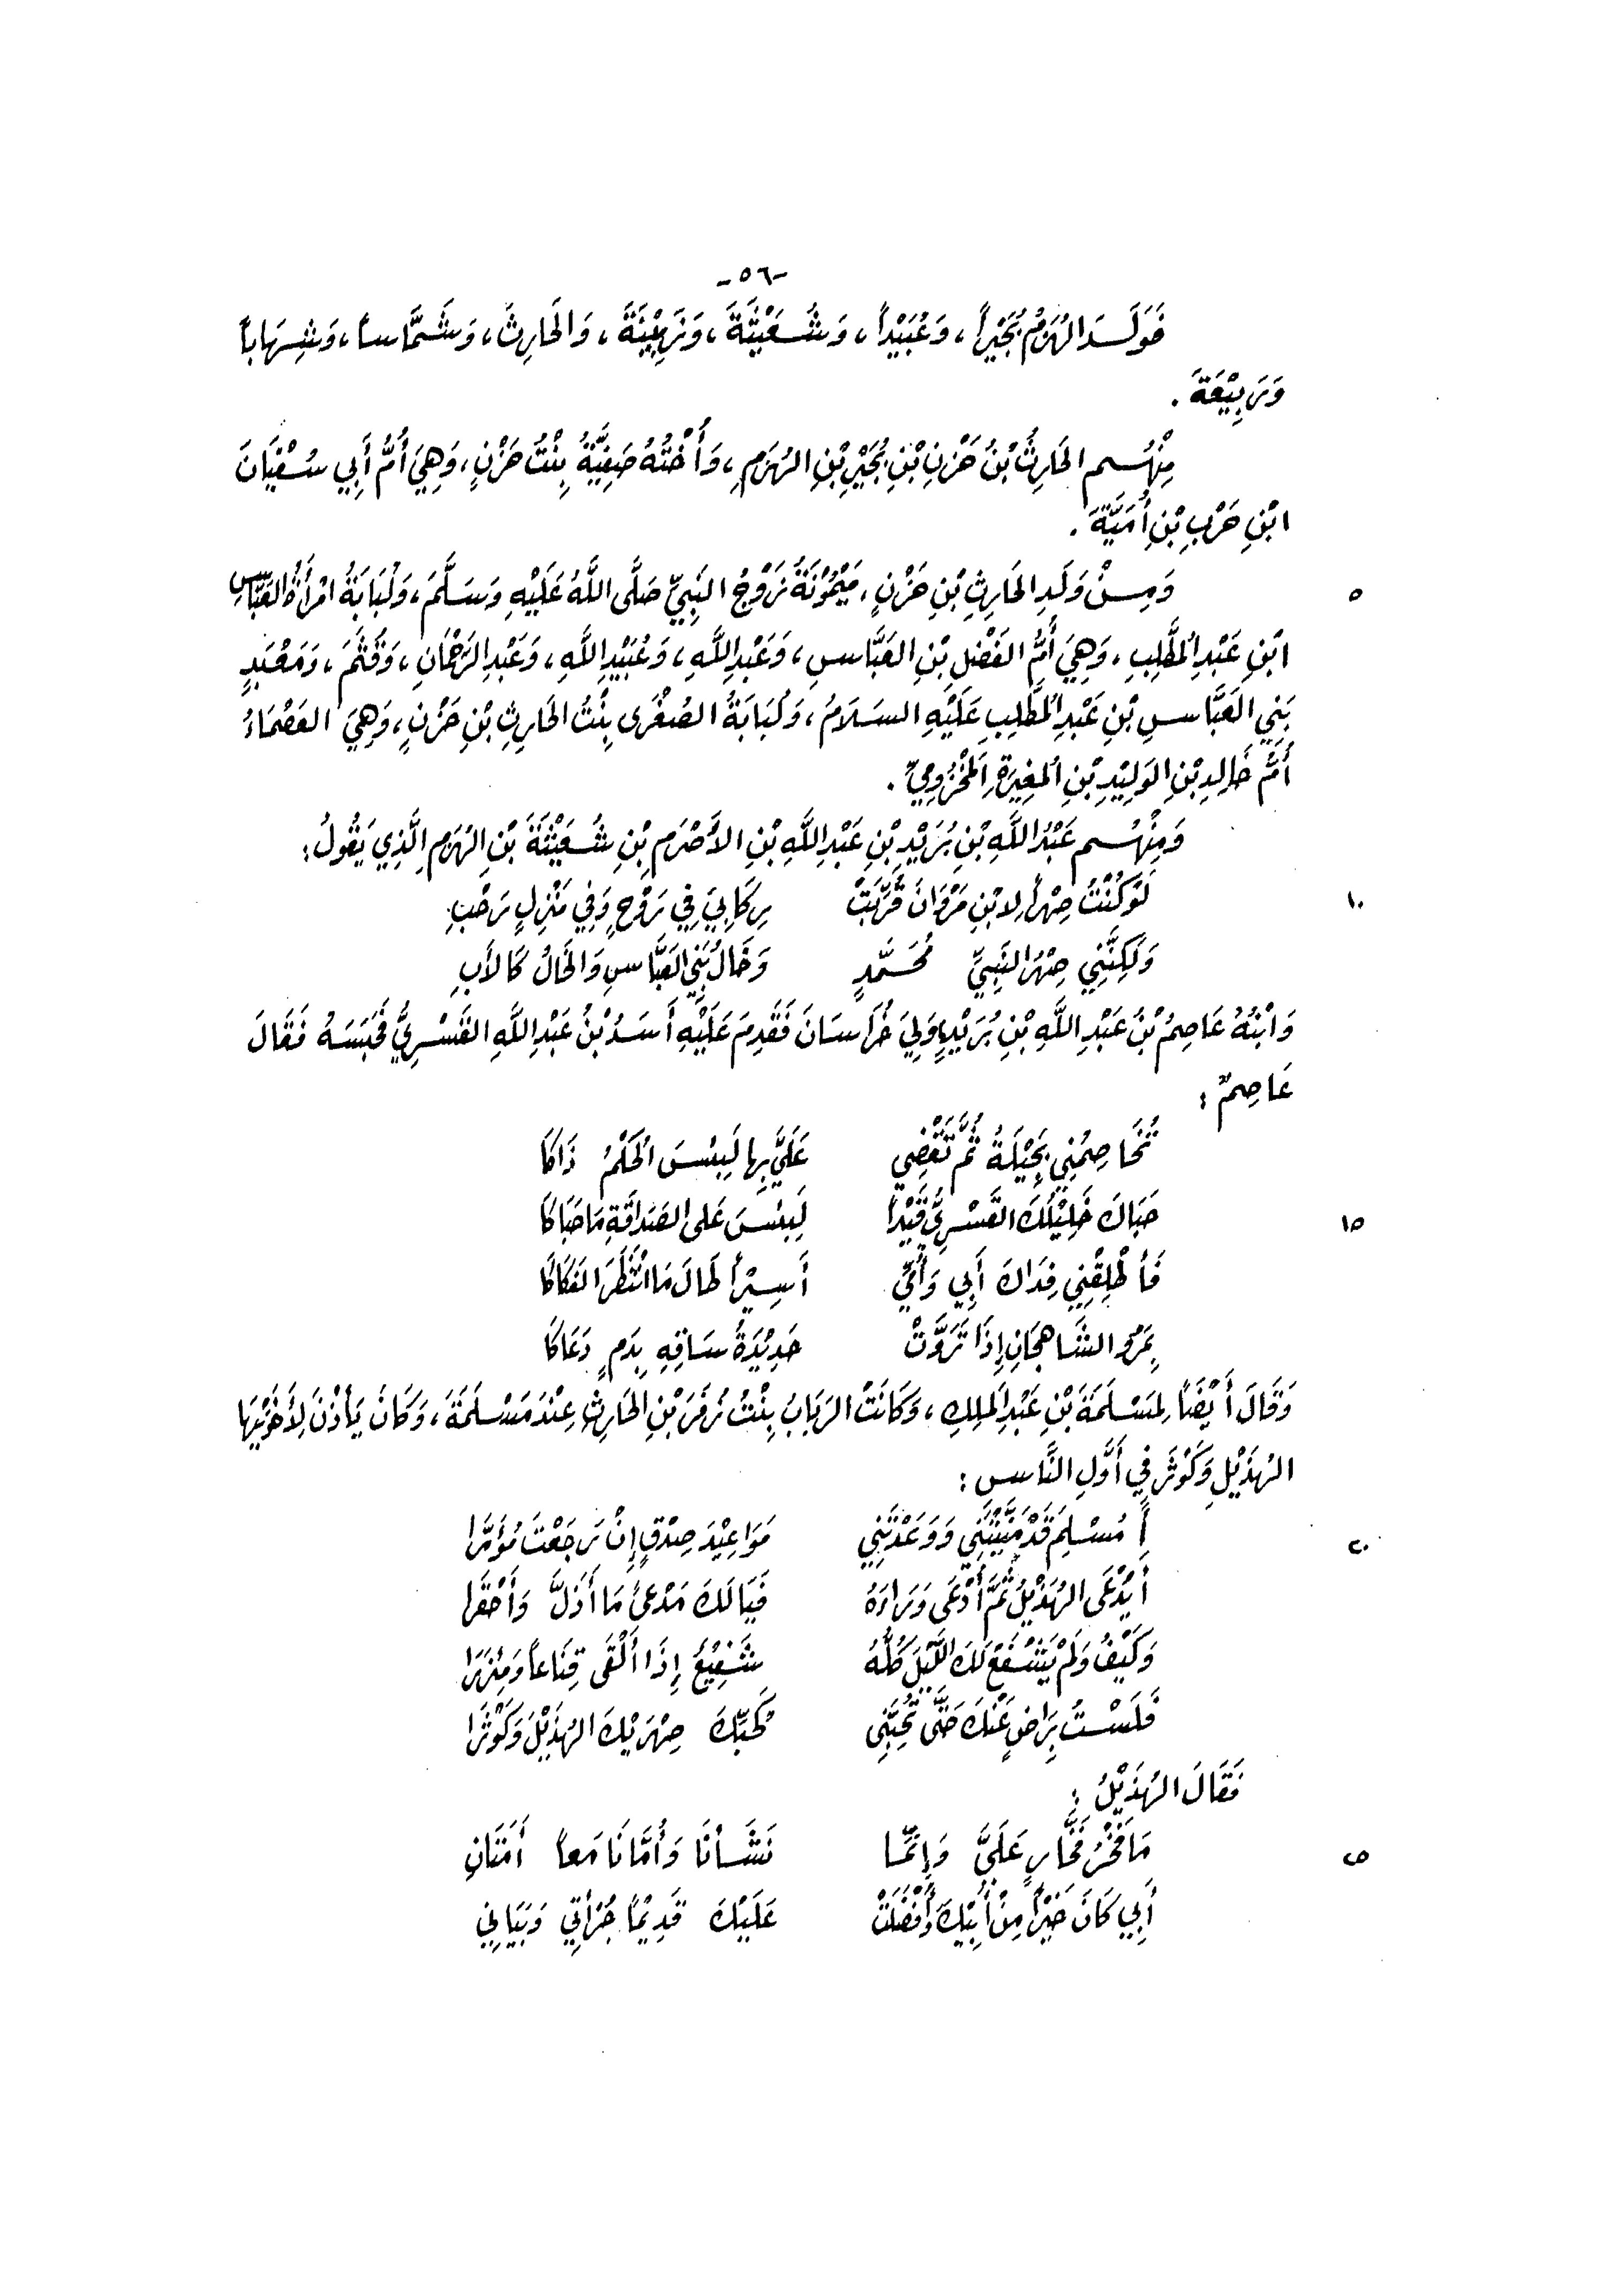 -٥٦-
فَوَلَدَ الهُزَمُ بُجَيْراً، وَعُبَيْداً، وَشُعَيْثَةَ، وَرَهِيْنَةَ، وَالحَارِثَ، وَشَمَّاساً، وَشِهَاباً
وَرَبِيْعَةَ.
مِنْهُم الحَارِثُ بْنُ حَزْنِ بْنِ بُجَيْرِ بْنِ الهُزَمِ، وَأُخْتُهُ صَفِيَّةُ بِنْتُ حَزْنٍ، وَهِيَ أُمُّ أَبِي سُفْيَانَ
ابْنِ حَرْبِ بْنِ أُمَيَّةَ.
٥ وَمِنْ وَلَدِ الحَارِثِ بْنِ حَزْنٍ، مَيْمُوْنَةُ زَوْجُ النَبِيِّ صَلَّى اللَّهُ عَلَيْهِ وَسَلَّمَ، وَلُبَابَةُ امْرَأَةُ العَبَّاسِ
ابْنِ عَبْدِ المُطَّلِبِ، وَهِيَ أُمُّ الفَضْلِ بْنِ العَبَّاسِ، وَعَبْدِ اللَّهِ، وَعُبَيْدِ اللَّهِ، وَعَبْدِ الرَحْمَانِ، وَقُثَمَ، وَمَعْبَدٍ
بَنِي العَبَّاسِ بْنِ عَبْدِ المُطَّلِبِ عَلَيْهِ السَلَامُ، وَلُبَابَةُ الصُغْرَى بِنْتُ الحَارِثِ بْنِ حَزْنٍ، وَهِيَ العَصْمَاءُ
أُمُّ خَالِدِ بْنِ الوَلِيْدِ بْنِ المُغِيْرَةِ المَخْزُوْمِيِّ.
وَمِنْهُم عَبْدُ اللَّهِ بْنِ يَزِيْدِ بْنِ عَبْدِ اللَّهِ بْنِ الأَصْرَمِ بْنِ شُعَيْثَةَ بْنِ الهُزَمِ الَّذِي يَقُولُ:
١٠ لَوْ كُنْتُ صِهْراً لِابْنِ مَرْوَانَ قُرِّبَتْ رِكَابِيَ فِي رَوْحٍ وَفِي مَنْزِلٍ رَحْبِ
وَلَكِنَّنِي صِهْرُ النَبِيِّ مُحَمَّدٍ وَخَالُ بَنِي العَبَّاسِ وَالخَالُ كَالأَبِ
وَابْنُهُ عَاصِمُ بْنُ عَبْدِ اللَّهِ بْنِ يَزِيْدٍ وَلِيَ خُرَاسَانَ فَقَدِمَ عَلَيْهِ أَسَدُ بْنُ عَبْدِ اللَّهِ القَسْرِيُّ فَحَبَسَهُ فَقَالَ
عَاصِمٌ:
تُخَاصِمُنِي بَجِيْلَةُ ثُمَّ تَقْضِي عَلَيَّ بِهَا لَبِئْسَ الحُكْمُ ذَاكَا
١٥ حَبَاكَ خَلِيْلُكَ القَسْرِيُّ قَيْداً لَبِئْسَ عَلى الصَدَاقَةِ مَا حَبَاكَا
فَأَطْلِقْنِي فِدَاكَ أَبِي وَأُمِّي أَسِيْراً طَالَ مَا انْتَظَرَ الفَكَاكَا
بِمَرْوِ الشَاهِجَانِ إِذَا تَرَوَّتْ حَدِيْدَةُ سَاقِهِ بِدَمٍ دَعَاكَا
وَقَالَ أَيْضَاً لِمَسْلَمَةَ بْنِ عَبْدِ المَلِكِ، وَكَانَتْ الرَبَابُ بِنْتُ زُفَرَ بْنِ الحَارِثِ عِنْدَ مَسْلَمَةَ، وَكَانَ يَأْذَنُ لِأَخَوَيْهَا
الهُذَيْلِ وَكَوْثَرَ فِي أَوَّلِ النَّاسِ:
٢٠ أَمُسْلِمَ قَدْ مَنَّيْتَنِي وَوَعَدْتَنِي مَوَاعِيْدَ صِدْقٍ إِنْ رَجَعْتَ مُؤَمَّرَا
أَيُدْعَى الهُذَيْلُ ثُمَّ أُدْعَى وَرَاءَهُ فَيَا لَكَ مَدْعَىً مَا أَذَلَّ وَأَحْقَرَا
وَكَيْفُ وَلَمْ يَشْفَعْ لَكَ اللَّيْلَ كُلَّهُ شَفِيْعٌ إِذَا أَلْقَى قِنَاعاً وَمِئْزَرَا
فَلَسْتُ بِرَاضٍ عَنْكَ حَتَّى تُحِبَّنِي كَحُبِّكَ صِهْرَيْكَ الهُذَيْلَ وَكَوْثَرَا
فَقَالَ الهُذَيْلُ:
٢٥ مَا فَخْرُ فَخَّارٍ عَلَيَّ وَإِنَّمَا نَشَأْنَا وَأُمَّانَا مَعاً أَمَتَانِ
أَبِي كَانَ خَيْراً مِنْ أَبِيْكَ وَأَفْضَلَتْ عَلَيْكَ قَدِيْمَاً جُرْأَتِي وَبَيَانِي